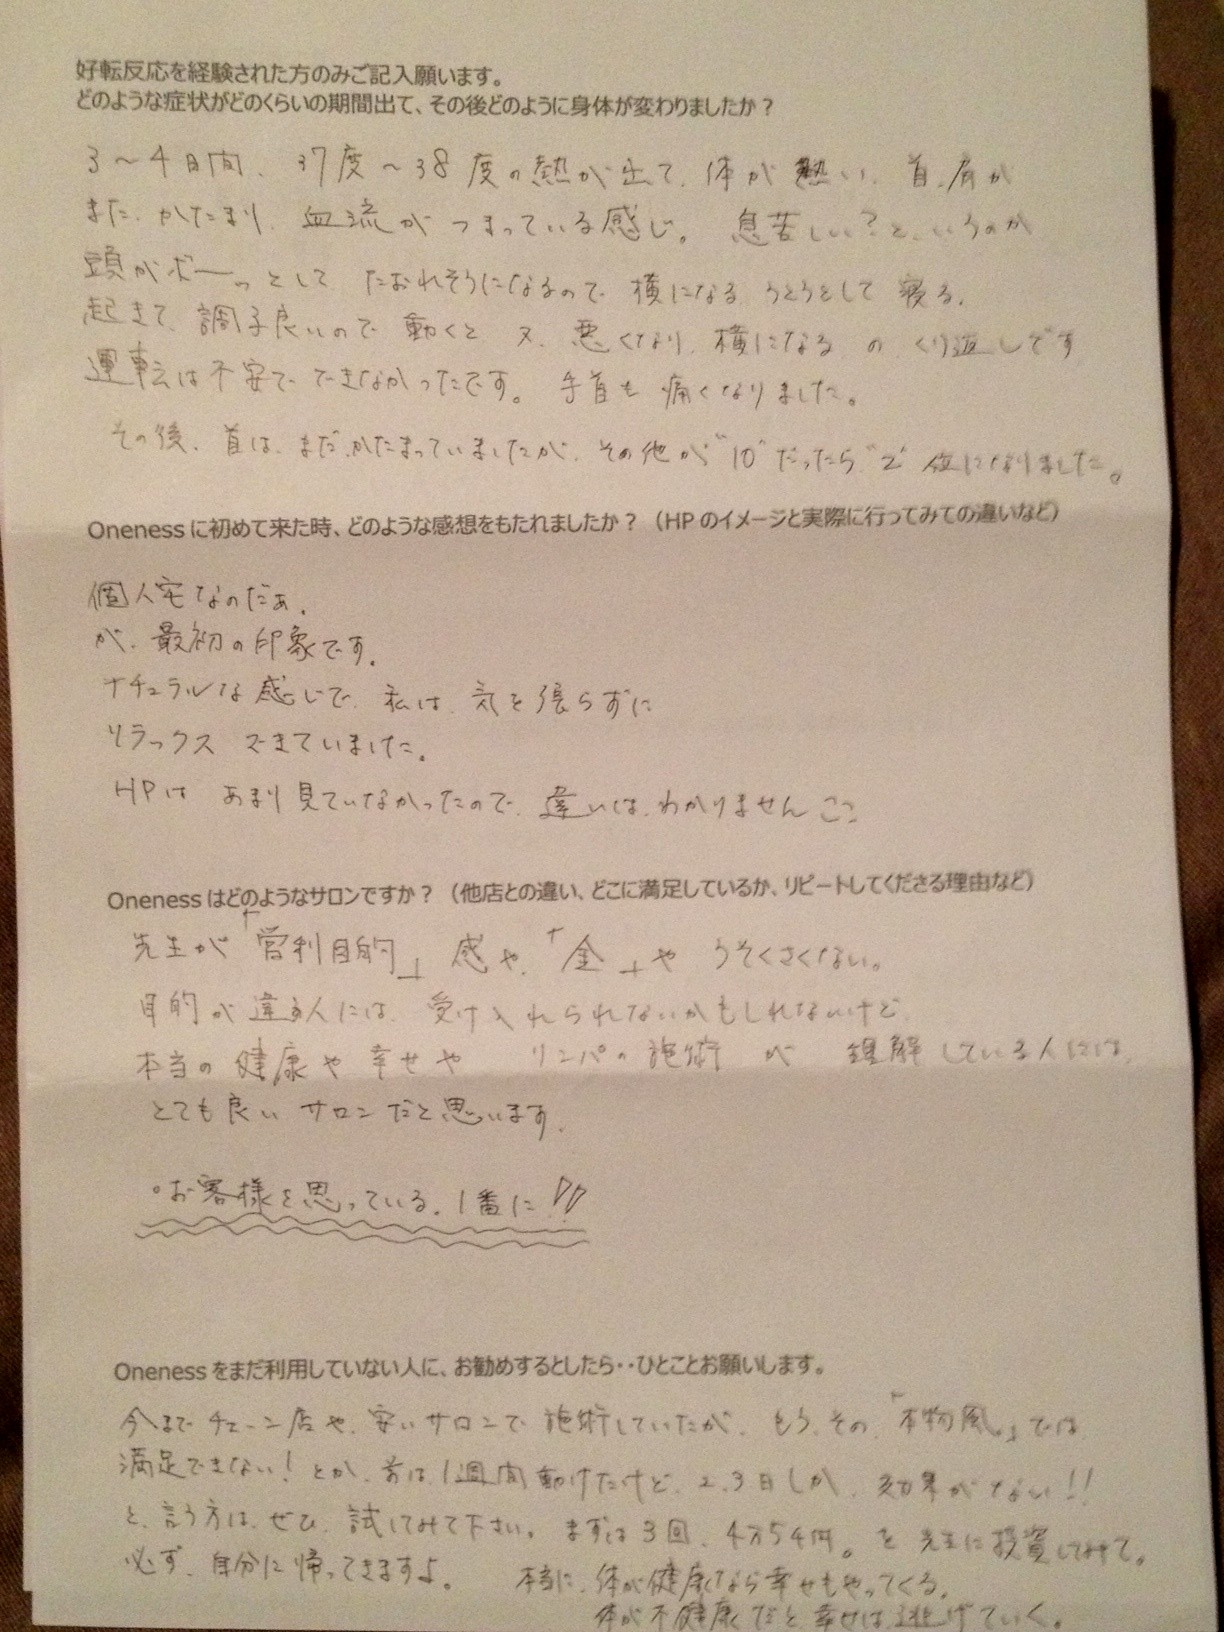 好転反応を経験された方のみご記入願います。
どのような症状がどのくらいの期間出て、その後どのように身体が変わりましたか？
3〜4日間、37度〜38度の熱が出て、体が熱い、首、肩が
また、かたまり、血流がつまっている感じ。息苦しい？と、いうのか
頭がボーっとして たおれそうになるので 横になる うとうとして 寝る、
起きて、調子良いので 動くと 又、悪くなり、横になる の くり返しです
運転は不安で できなかったです。 手首も 痛くなりました。
その後、首は、まだ、かたまっていましたが、その他が"10"だったら"2"位になりました。
Onenessに初めて来た時、どのような感想をもたれましたか？（HPのイメージと実際に行ってみての違いなど）
個人宅なのだぁ、
が、最初の印象です。
ナチュラルな感じで、私は、気を張らずに
リラックス できていました。
HPは あまり見ていなかったので、違いは、わかりません
Onenessはどのようなサロンですか？（他店との違い、どこに満足しているか、リピートしてくださる理由など）
先生が「営利目的」感や、「金」や うそくさくない。
目的が違う人には、受け入れられないかもしれないけど、
本当の健康や幸せや リンパの施術 が 理解している人には、
とても良い サロンだと思います。
・お客様を思っている、1番に!!
Onenessをまだ利用していない人に、お勧めするとしたら・・ひとことお願いします。
今まで チェーン店や、安いサロンで 施術していたが、もう、その「本物風」では
満足できない！とか、前は、1週間動けたけど、2、3日しか、効果がない!!
と、言う方は、ぜひ、試してみて下さい。まずは3回、4万54円。を 先生に投資してみて。
必ず、自分に帰ってきますよ。 本当に、体が健康なら幸せもやってくる、
体が不健康だと 幸せは、逃げていく。